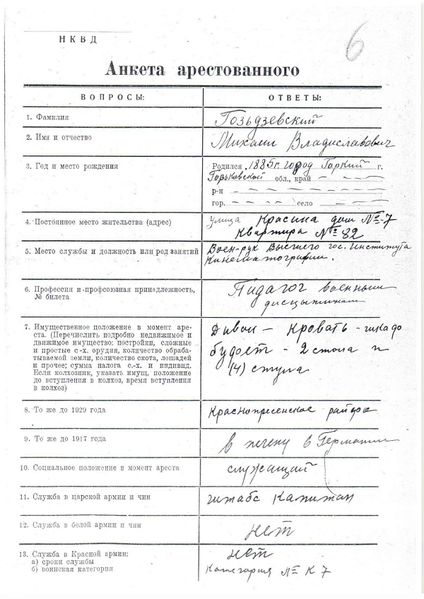 НКВД
6
Анкета арестованного
ВОПРОСЫ: ОТВЕТЫ:
1. Фамилия Гозьдзевский
2. Имя и отчество Михаил Владиславович
3. Год и место рождения Родился 1885г. город Горкий г.
Горьковской обл., край
р-н
гор. село
4. Постоянное место жительства (адрес) улица Красина дом № 7
квартира № 32
5. Место службы и должность или род занятий Воен-рук Высшего гос. Института
Кинематографии.
6. Профессия и профсоюзная принадлежность, № билета Педагог военный
7. Имущественное положение в момент аре-
ста. (Перечислить подробно недвижимое и
движимое имущество: постройки, сложные
и простые с.-х. орудия, количество обраба-
тываемой земли, количество скота, лошадей
и прочее; сумма налога с.-х. и индивид.
Если колхозник, указать имущ. положение
до вступления в колхоз, время вступления
в колхоз)
Диван - Кровать -
буфет - 2 стола и
(4) стула
8. То же до 1929 года Краснопресненское
9. То же до 1917 года в Германии
10. Социальное положение в момент ареста служащий
11. Служба в царской армии и чин штабс Капитан
12. Служба в белой армии и чин нет
13. Служба в Красной армии: нет
а) сроки службы
б) воинская категория Категория № К 7